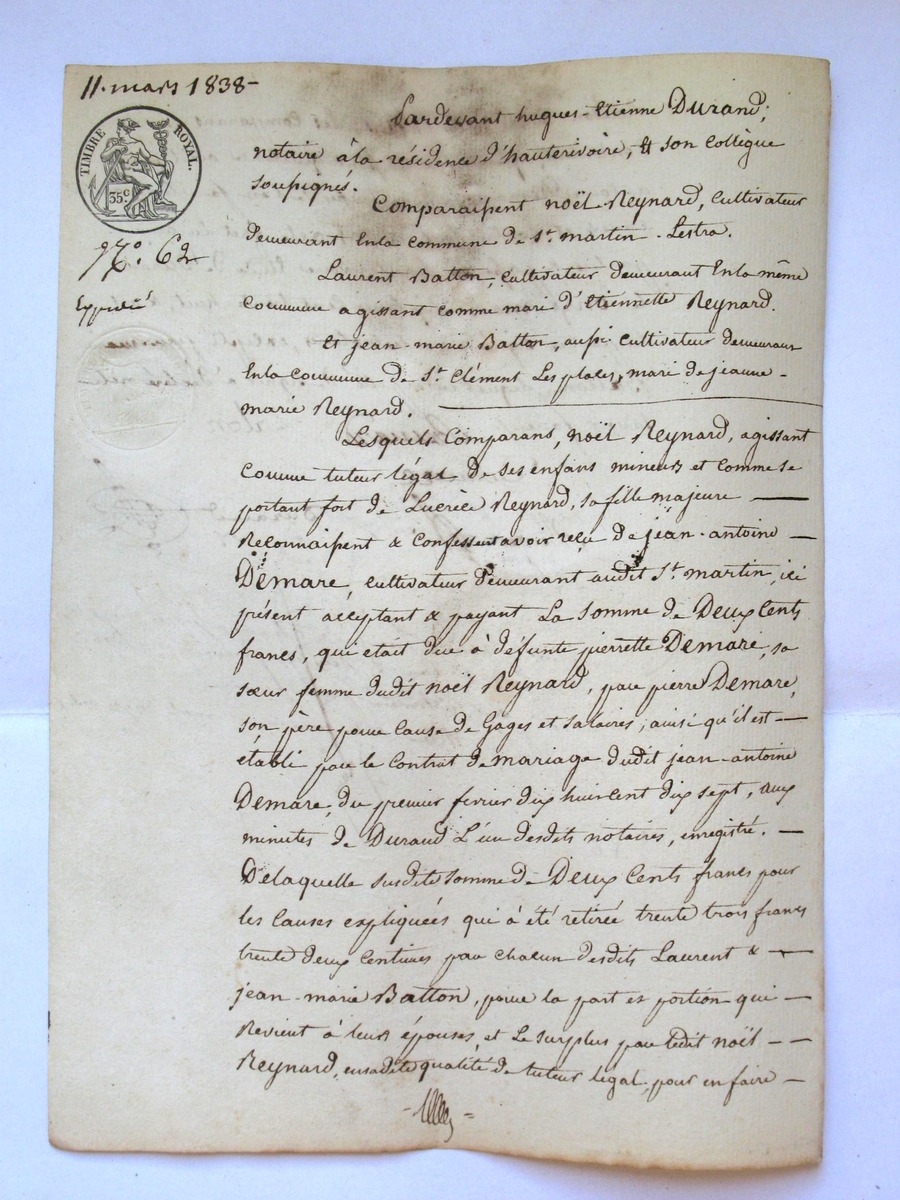 11. mars 1838-
TIMBRE ROYAL.
35.c
N.o 62
Expédié
Pardevant hugues-Etienne Durand,
notaire à la résidence d'hauterivoire, & son Collègue
soussignés.
Comparaissent noël Reynard, Cultivateur
demeurant En la commune de St. martin-Lestra.
Laurent Batton, cultivateur demeurant En la même
commune agissant comme mari d'Etiennette Reynard.
Et jean-marie Batton, aussi cultivateur demeurant
En la commune de St. Clément Les places, mari de jeanne-
marie Reynard.
Lesquels Comparans, noël Reynard, agissant
comme tuteur légal de ses enfans mineurs et comme se
portant fort de Lucrèce Reynard, sa fille majeure —
Reconnaissent & Confessent avoir reçu de jean-antoine —
Demare, cultivateur demeurant audit St. martin, ici
présent acceptant & payant La somme de Deux Cents
francs, qui etait due à défunte pierrette Demare, sa
sœur femme dudit noël Reynard, par pierre Demare,
son père pour Cause de Gages et salaires, ainsi qu'il est —
établi par le Contrat de mariage dudit jean-antoine
Demare, du premier fevrier dix huit cent dix sept, aux
minutes de Durand L'un desdits notaires, enregistré. —
De laquelle susdite somme de Deux Cents francs pour
les Causes expliquées qui à été retirée trente trois francs
trente deux Centimes par chacun desdits Laurent & —
jean-marie Batton, pour la part et portion qui —
Revient à leurs épouses et Le surplus par ledit noël — —
Reynard, en sadite qualité de tuteur légal, pour en faire —